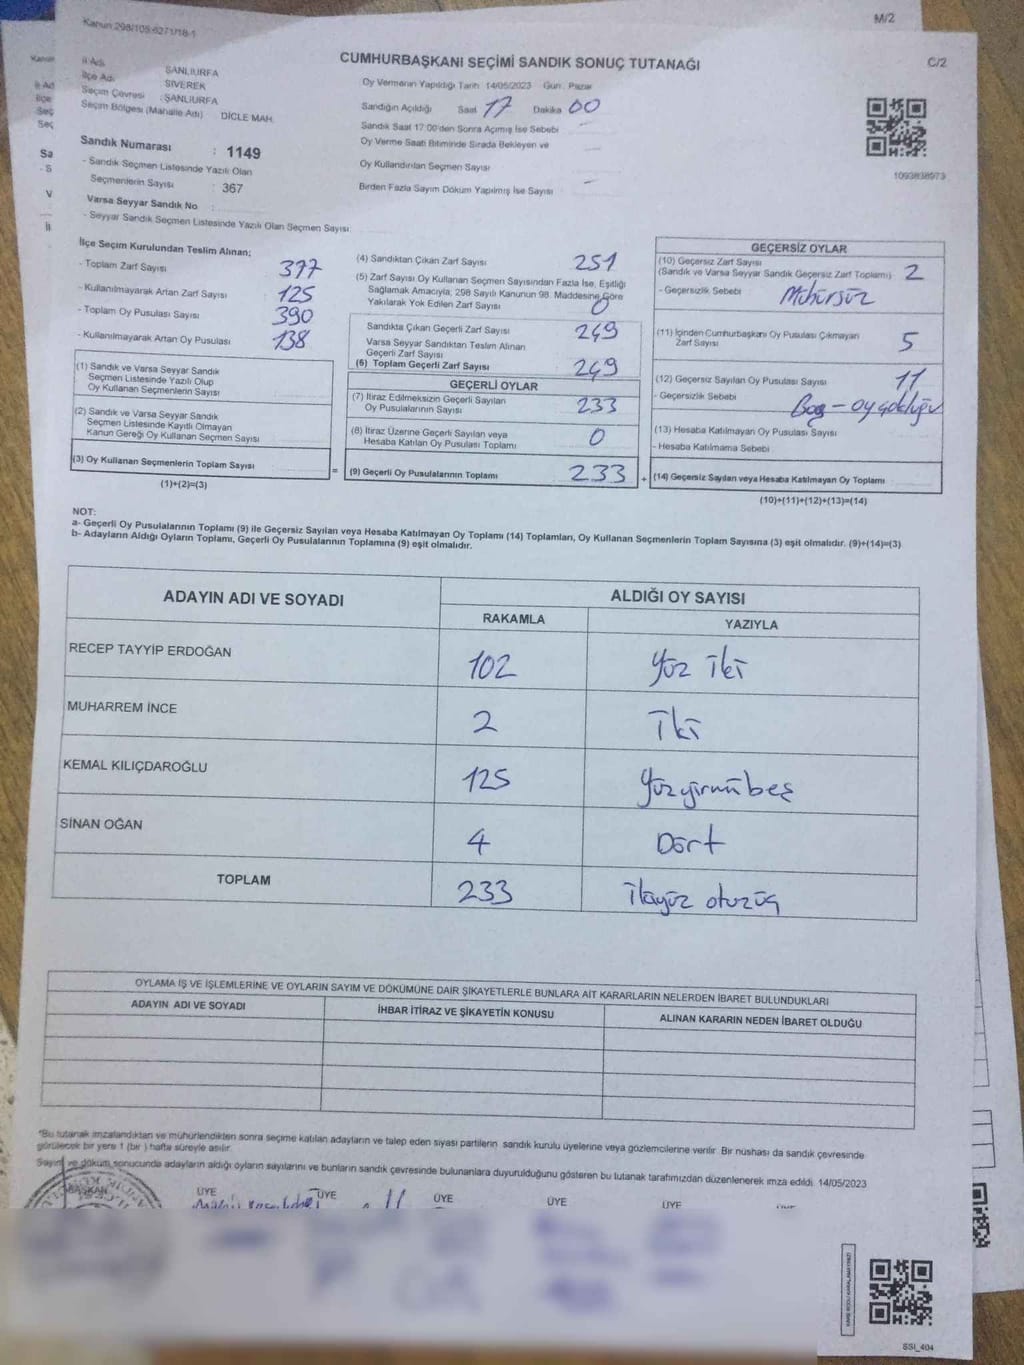 Kanun:298/105:6271/18-1
M/2
C/2
CUMHURBAŞKANI SEÇİMİ SANDIK SONUÇ TUTANAĞI
İl Adı ŞANLIURFA
İlçe Adı SİVEREK
Seçim Çevresi : ŞANLIURFA
Seçim Bölgesi (Mahalle Adı) DİCLE MAH.
Sandık Numarası : 1149
- Sandık Seçmen Listesinde Yazılı Olan
Seçmenlerin Sayısı : 367
Varsa Seyyar Sandık No
- Seyyar Sandık Seçmen Listesinde Yazılı Olan Seçmen Sayısı
Oy Vermenin Yapıldığı Tarih 14/05/2023 Gün: Pazar
Sandığın Açıldığı Saat 17 Dakika 00
Sandık Saat 17:00'den Sonra Açımış İse Sebebi
Oy Verme Saati Bitiminde Sırada Bekleyen ve
Oy Kullandırılan Seçmen Sayısı
Birden Fazla Sayım Döküm Yapılmış İse Sayısı –
1093838973
İlçe Seçim Kurulundan Teslim Alınan;
- Toplam Zarf Sayısı 377
- Kullanılmayarak Artan Zarf Sayısı 125
- Toplam Oy Pusulası Sayısı 390
- Kullanılmayarak Artan Oy Pusulası 138
(1) Sandık ve Varsa Seyyar Sandık
Seçmen Listesinde Yazılı Olup
Oy Kullanan Seçmenlerin Sayısı
(2) Sandık ve Varsa Seyyar Sandık
Seçmen Listesinde Kayıtlı Olmayan
Kanun Gereği Oy Kullanan Seçmen Sayısı
(3) Oy Kullanan Seçmenlerin Toplam Sayısı
(1)+(2)=(3)
(4) Sandıktan Çıkan Zarf Sayısı 251
(5) Zarf Sayısı Oy Kullanan Seçmen Sayısından Fazla İse, Eşitliği
Sağlamak Amacıyla, 298 Sayılı Kanunun 98. Maddesine Göre
Yakılarak Yok Edilen Zarf Sayısı 0
Sandıkta Çıkan Geçerli Zarf Sayısı 249
Varsa Seyyar Sandıktan Teslim Alınan
Geçerli Zarf Sayısı
(6) Toplam Geçerli Zarf Sayısı 249
GEÇERLİ OYLAR
(7) İtiraz Edilmeksizin Geçerli Sayılan
Oy Pusulalarının Sayısı 233
(8) İtiraz Üzerine Geçerli Sayılan veya
Hesaba Katılan Oy Pusulası Toplamı 0
= (9) Geçerli Oy Pusulalarının Toplamı 233 +
GEÇERSİZ OYLAR
(10) Geçersiz Zarf Sayısı
(Sandık ve Varsa Seyyar Sandık Geçersiz Zarf Toplamı) 2
- Geçersizlik Sebebi Mühürsüz
(11) İçinden Cumhurbaşkanı Oy Pusulası Çıkmayan
Zarf Sayısı 5
(12) Geçersiz Sayılan Oy Pusulası Sayısı 11
- Geçersizlik Sebebi Boş - oy çokluğu
(13) Hesaba Katılmayan Oy Pusulası Sayısı
- Hesaba Katılmama Sebebi
(14) Geçersiz Sayılan veya Hesaba Katılmayan Oy Toplamı
(10)+(11)+(12)+(13)=(14)
NOT:
a- Geçerli Oy Pusulalarının Toplamı (9) ile Geçersiz Sayılan veya Hesaba Katılmayan Oy Toplamı (14) Toplamları, Oy Kullanan Seçmenlerin Toplam Sayısına (3) eşit olmalıdır. (9)+(14)=(3)
b- Adayların Aldığı Oyların Toplamı, Geçerli Oy Pusulalarının Toplamına (9) eşit olmalıdır.
ADAYIN ADI VE SOYADI ALDIĞI OY SAYISI
RAKAMLA YAZIYLA
RECEP TAYYİP ERDOĞAN 102 Yüz İki
MUHARREM İNCE 2 İki
KEMAL KILIÇDAROĞLU 125 Yüzyirmibeş
SİNAN OĞAN 4 Dört
TOPLAM 233 İkiyüz otuzüç
OYLAMA İŞ VE İŞLEMLERİNE VE OYLARIN SAYIM VE DÖKÜMÜNE DAİR ŞİKAYETLERLE BUNLARA AİT KARARLARIN NELERDEN İBARET BULUNDUKLARI
ADAYIN ADI VE SOYADI İHBAR İTİRAZ VE ŞİKAYETİN KONUSU ALINAN KARARIN NEDEN İBARET OLDUĞU
*Bu tutanak imzalandıktan ve mühürlendikten sonra seçime katılan adayların ve talep eden siyasi partilerin sandık kurulu üyelerine veya gözlemcilerine verilir. Bir nüshası da sandık çevresinde
görülecek bir yere 1 (bir ) hafta süreyle asılır.
Sayım ve döküm sonucunda adayların aldığı oyların sayılarını ve bunların sandık çevresinde bulunanlara duyurulduğunu gösteren bu tutanak tarafımızdan düzenlenerek imza edildi. 14/05/2023
BAŞKAN ÜYE ÜYE ÜYE ÜYE ÜYE
SSI_404